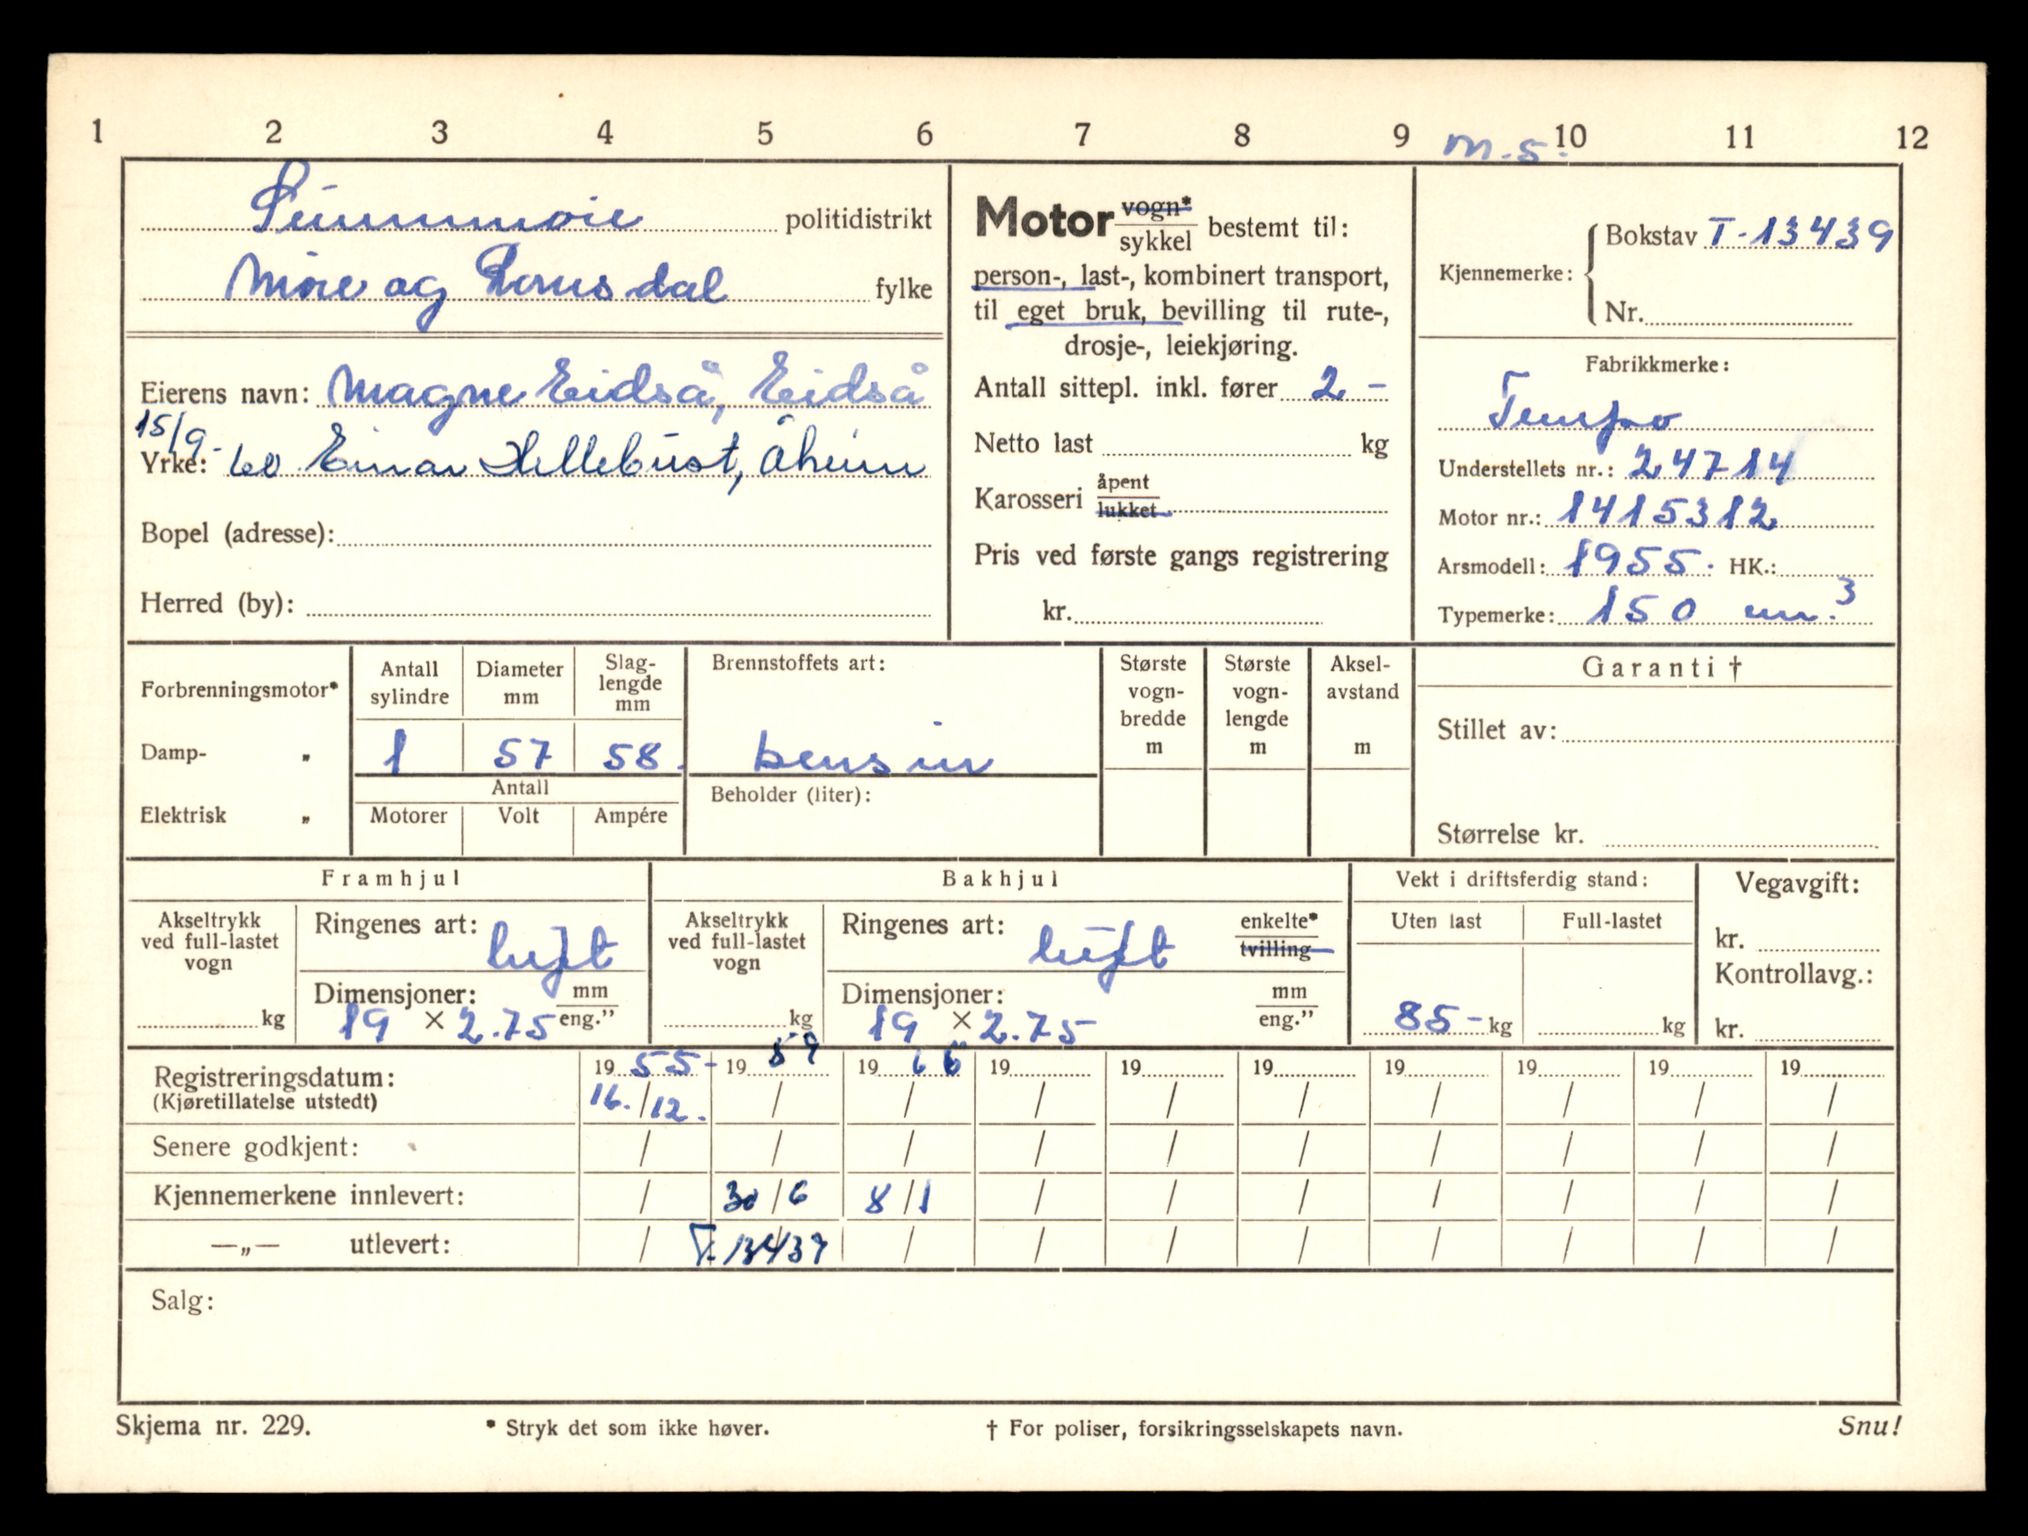 1 2 3 4 5 6 7 8 9 10 11 12
m.s.
Sunnmøre politidistrikt
Møre og Romsdal fylke
Eierens navn: Magne Eidså, Eidså
15/9-60 Yrke: Einar Hellebust, Åheim
Bopel (adresse):
Herred (by):
Motor vogn* sykkel bestemt til:
person-, last-, kombinert transport,
til eget bruk, bevilling til rute-,
drosje-, leiekjøring.
Antall sittepl. inkl. fører 2 -
Netto last kg
Karosseri åpent lukket
Pris ved første gangs registrering
kr.
Kjennemerke: Bokstav T-13439
Nr.
Fabrikkmerke:
Tempo
Understellets nr.: 24714
Motor nr.: 1415312
Arsmodell: 1955. HK.:
Typemerke: 150 cm.3
Forbrenningsmotor*
Damp- „
Elektrisk „
Antall sylindre
1
Diameter mm
57
Slag-lengde mm
58.
Antall
Motorer Volt Ampére
Brennstoffets art:
bensin
Beholder (liter):
Største vogn-bredde m
Største vogn-lengde m
Aksel-avstand m
Garanti †
Stillet av:
Størrelse kr.
Framhjul
Akseltrykk ved full-lastet vogn
kg
Ringenes art: luft
Dimensjoner: mm eng."
19 × 2.75
Bakhjul
Akseltrykk ved full-lastet vogn
kg
Ringenes art: luft enkelte* tvilling
Dimensjoner: mm eng."
19 × 2.75
Vekt i driftsferdig stand:
Uten last Full-lastet
85- kg kg
Vegavgift:
kr.
Kontrollavg.:
kr.
Registreringsdatum: 1955- 1959 1966 19 19 19 19 19 19 19
(Kjøretillatelse utstedt) 16./12. / / / / / / / / /
Senere godkjent: / / / / / / / / / /
Kjennemerkene innlevert: / 30/6 8/1 / / / / / / /
—„— utlevert: / T-13439 / / / / / / / /
Salg:
Skjema nr. 229. * Stryk det som ikke høver. † For poliser, forsikringsselskapets navn. Snu!